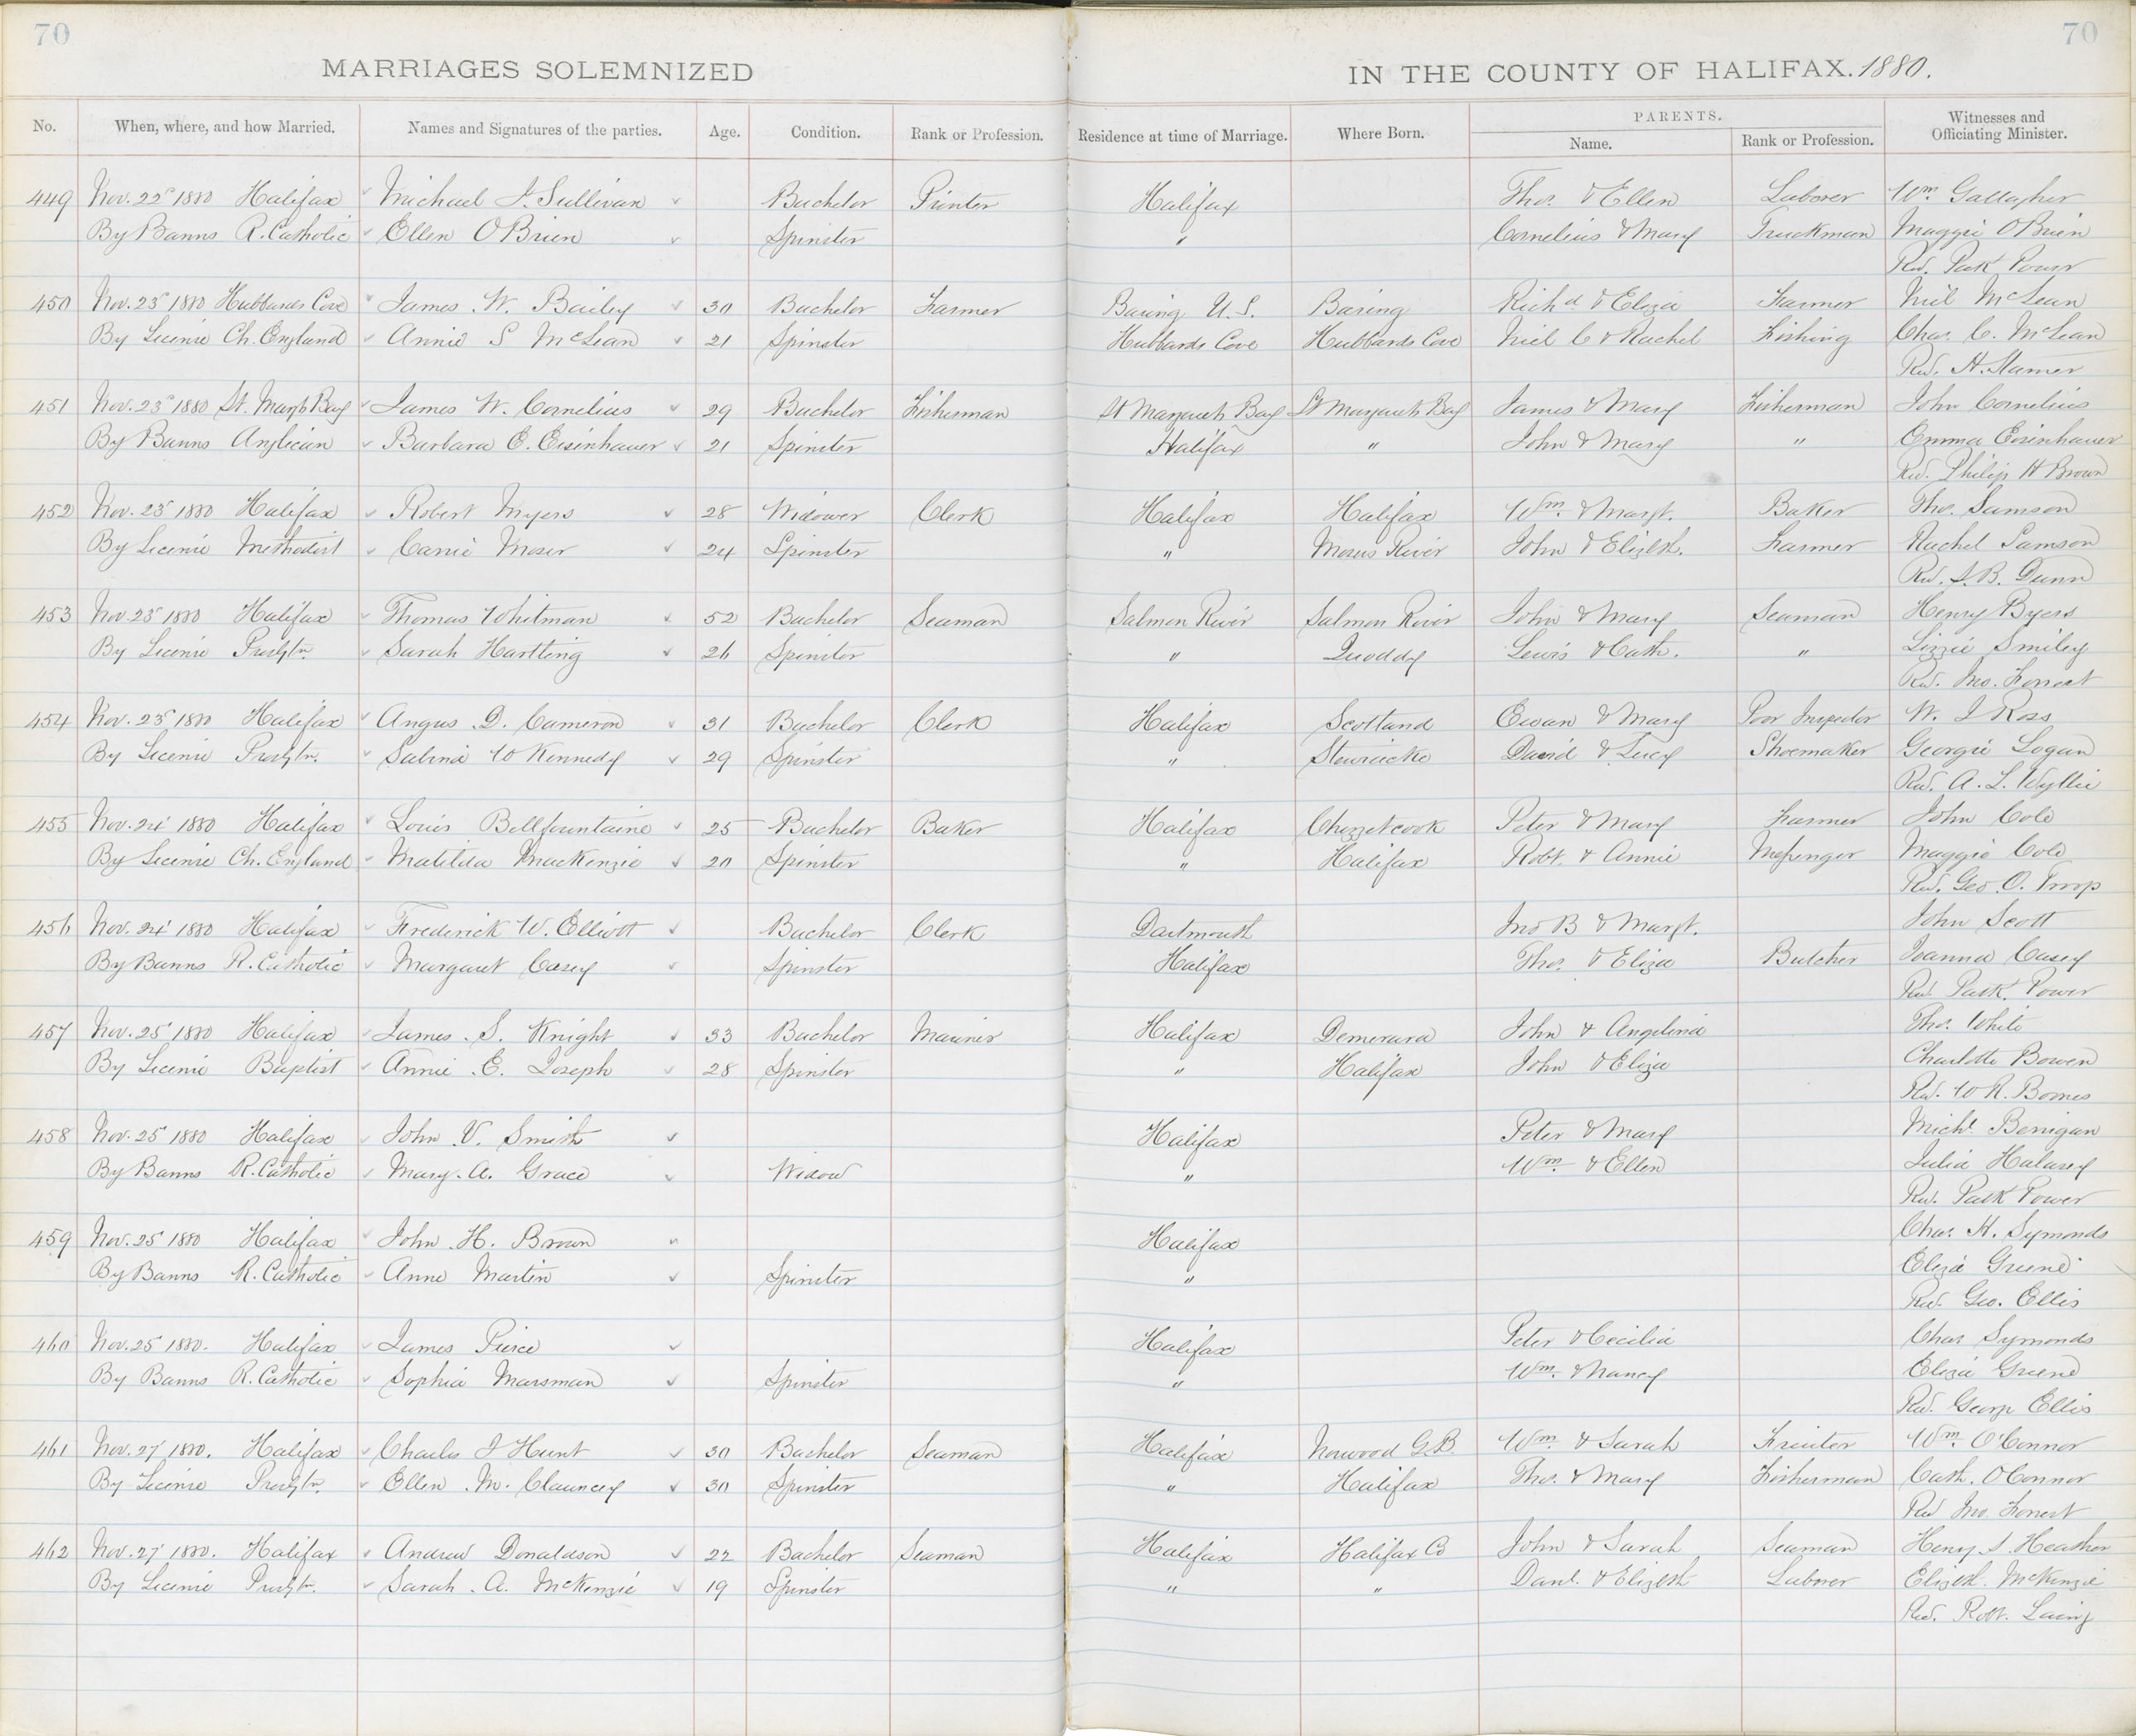 70
70
MARRIAGES SOLEMNIZED
IN THE COUNTY OF HALIFAX. 1880.
No. When, where, and how Married. Names and Signatures of the parties. Age. Condition. Rank or Profession. Residence at time of Marriage. Where Born. PARENTS. Name. Rank or Profession. Witnesses and Officiating Minister.
449 Nov. 22 1880 Halifax Michael J. Sullivan Bachelor Printer Halifax Thos. & Ellen Laborer Wm Gallagher
By Banns R. Catholic Ellen O'Brien Spinster " Cornelius & Mary Truckman Maggie O'Brien
Rev. Patk Power
450 Nov. 23 1880 Hubbards Cove James W. Bailey 30 Bachelor Farmer Baring U.S. Baring Richd & Eliza Farmer Neil McLean
By Licence Ch. England Annie S McLean 21 Spinster Hubbards Cove Hubbards Cove Neil C & Rachel Fishing Chas. C. McLean
Rev. H. Stamer
451 Nov. 23 1880 St. Margts Bay James W. Cornelius 29 Bachelor Fisherman St Margarets Bay St Margarets Bay James & Mary Fisherman John Cornelius
By Banns Anglican Barbara E. Eisenhauer 21 Spinster Halifax " John & Mary " Emma Eisenhauer
Rev. Philip H Brown
452 Nov. 23 1880 Halifax Robert Myers 28 Widower Clerk Halifax Halifax Wm. & Margt. Baker Thos. Samson
By Licence Methodist Carrie Moser 24 Spinster " Mosers River John & Elizbth. Farmer Rachel Samson
Rev. S. B. Dunn
453 Nov 23 1880 Halifax Thomas Whitman 52 Bachelor Seaman Salmon River Salmon River John & Mary Seaman Henry Byers
By Licence Presbtn. Sarah Hartling 26 Spinster " Quoddy Lewis & Cath. " Lizzie Smiley
Rev. Jno. Forrest
454 Nov. 23 1880 Halifax Angus D. Cameron 31 Bachelor Clerk Halifax Scotland Ewan & Mary Poor Inspector W. I Ross
By Licence Presbtn. Sabina W Kennedy 29 Spinster " Stewiacke David & Lucy Shoemaker Georgie Logan
Rev. A. L. Wyllie
455 Nov. 24 1880 Halifax Louis Bellfountaine 25 Bachelor Baker Halifax Chezzetcook Peter & Mary Farmer John Cole
By Licence Ch. England Matilda MacKenzie 20 Spinster " Halifax Robt. & Annie Messenger Maggie Cole
Rev. Geo. O. Troop
456 Nov. 24 1880 Halifax Frederick W. Elliott Bachelor Clerk Dartmouth Jno B & Margt. John Scott
By Banns R. Catholic Margaret Casey Spinster Halifax Thos. & Eliza Butcher Joanna Casey
Rev. Patk. Power
457 Nov. 25 1880 Halifax James S. Knight 33 Bachelor Mariner Halifax Demerara John & Angelina Thos. White
By Licence Baptist Annie E. Joseph 28 Spinster " Halifax John & Eliza Charlotte Bowen
Rev. W R.
458 Nov. 25 1880 Halifax John V. Smith Halifax Peter & Mary Michl. Berrigan
By Banns R. Catholic Mary A. Grace Widow " Wm. & Ellen Julia
Rev. Patk Power
459 Nov. 25 1880 Halifax John H. Brown Halifax Chas. H. Symonds
By Banns R. Catholic Anne Martin Spinster " Eliza Greene
Rev. Geo. Ellis
460 Nov. 25 1880. Halifax James Pierce Halifax Peter & Cecilia Chas Symonds
By Banns R. Catholic Sophia Marsman Spinster " Wm. & Nancy Eliza Greene
Rev. George Ellis
461 Nov. 27 1880. Halifax Charles J Hunt 30 Bachelor Seaman Halifax Norwood G.B. Wm. & Sarah Wm. O'Connor
By Licence Presbtn. Ellen M. Clauncey 30 Spinster " Halifax Thos. & Mary Fisherman Cath. O'Connor
Rev Jno. Forrest
462 Nov. 27 1880. Halifax Andrew Donaldson 22 Bachelor Seaman Halifax Halifax Co John & Sarah Seaman Henry S. Heather
By Licence Presbtn. Sarah A. McKenzie 19 Spinster " " Danl. & Elizbth Laborer Elizbth. McKenzie
Rev. Robt. Laing